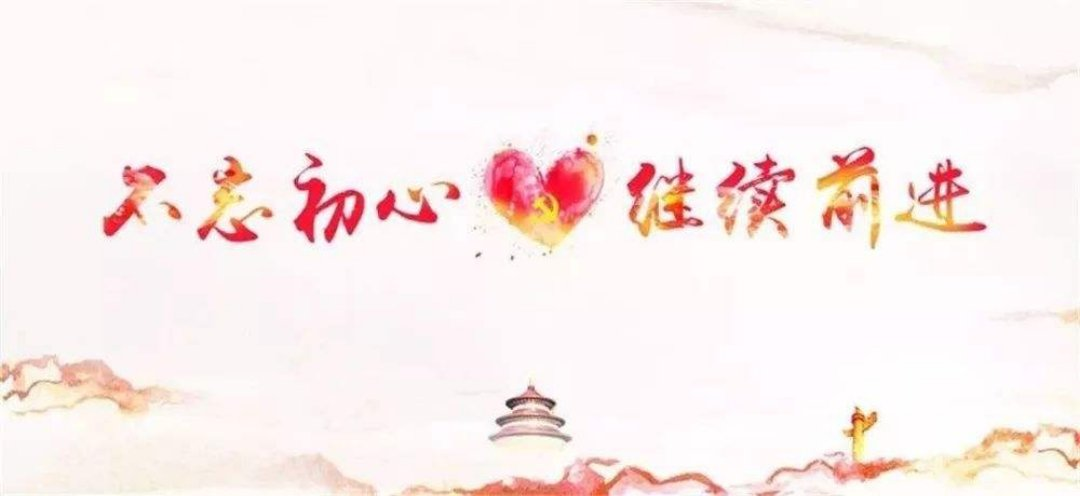 不忘初心 继续前进